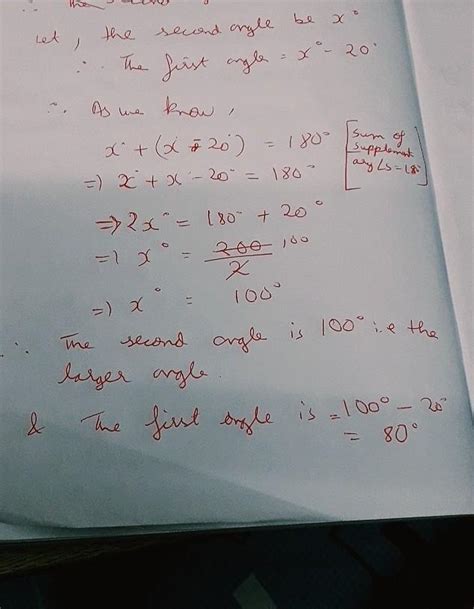 ∴ The second
Let, the second angle be x°
∴ The first angle = x° - 20°
∴ As we know,
x° + (x° - 20°) = 180° [Sum of supplementary ∠s = 180°]
=) x° + x° - 20° = 180°
=> 2x° = 180° + 20°
=) x° = 200/2 100
=) x° = 100°
∴ The second angle is 100° i.e the
larger angle.
& The first angle is = 100° - 20°
= 80°